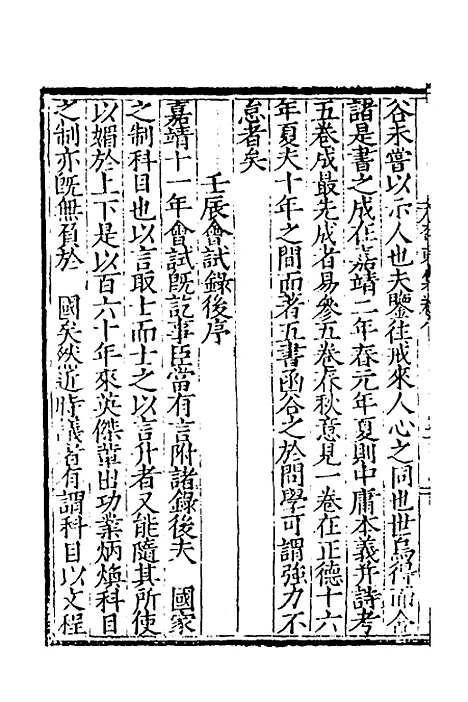 谷未嘗以示人也夫鑒往戒來人心之同也世烏得而舍
諸是書之成在嘉靖二年春元年夏則中庸本義并詩考
五卷成最先成者易參五卷春秋意見一卷在正德十六
年夏夫十年之間而者五書函谷之於問學可謂強力不
怠者矣
壬辰會試錄後序
嘉靖十一年會試既訖事臣當有言附諸錄後夫　國家
之制科目也以言取士而士之以言升者又能隨其所使
以媚於上下是以百六十年來英傑輩出功業炳煥科目
之制亦既無負於　國矣然近時議者有謂科目以文程